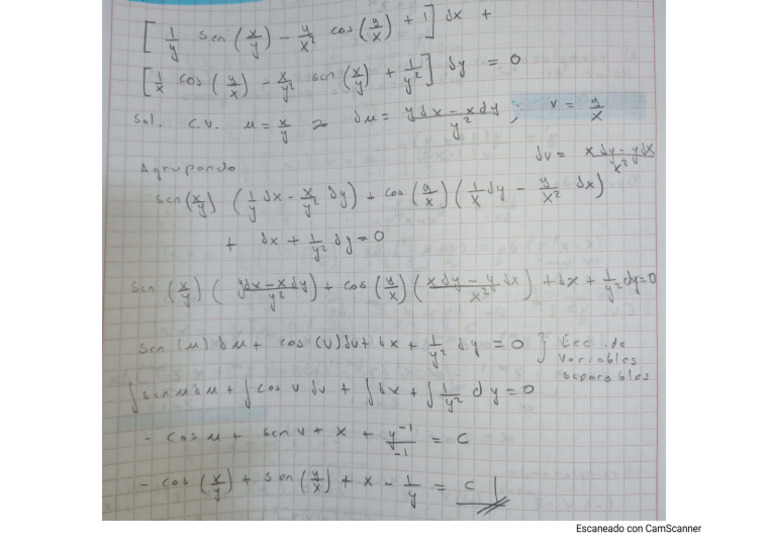 [ 1/y sen(x/y) - y/x² cos(y/x) + 1 ] dx +
[ 1/x cos(y/x) - x/y² sen(x/y) + 1/y² ] dy = 0
Sol. C.V. u = x/y ⇒ du = (ydx - xdy)/y² ; v = y/x
dv = (xdy - ydx)/x²
Agrupando
sen(x/y) (1/y dx - x/y² dy) + cos(y/x) (1/x dy - y/x² dx)
+ dx + 1/y² dy = 0
sen(x/y) ((ydx - xdy)/y²) + cos(y/x) ((xdy - ydx)/x²) + dx + 1/y² dy = 0
sen(u) du + cos(v) dv + dx + 1/y² dy = 0 } Ecc. de
variables
separables
∫ sin u du + ∫ cos v dv + ∫ dx + ∫ 1/y² dy = 0
- cos u + sen v + x + y⁻¹/-1 = c
- cos(x/y) + sen(y/x) + x - 1/y = c
Escaneado con CamScanner